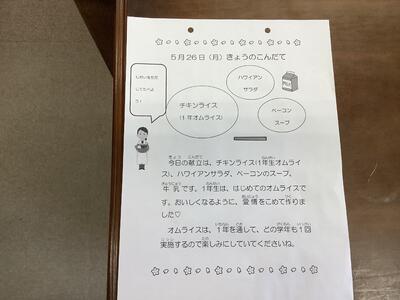 5月26日(月)きょうのこんだて
してたべよ
う!
チキンライス
(1年オムライス)
ハワイアン
サラダ
ベーコン
スープ
今日の献立は、チキンライス(1年生オムライ
ス)、ハワイアンサラダ、ベーコンのスープ、
牛乳です。1年生は、はじめてのオムライスで
す。おいしくなるように、愛情をこめて作りま
した♡
オムライスは、1年を通して、どの学年も1回
実施するので楽しみにしていてくださいね。